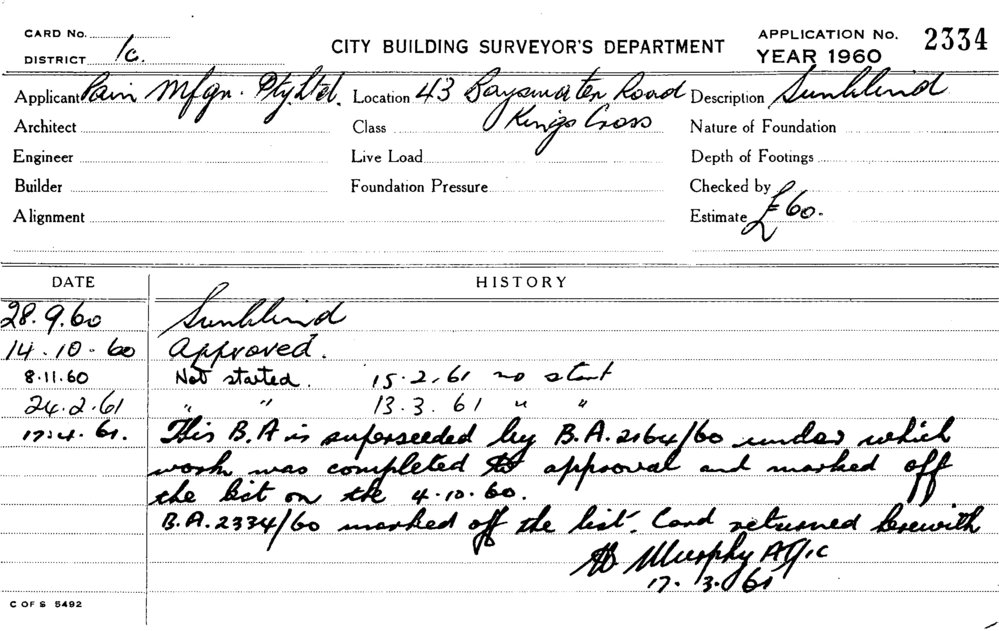 CARD No.
DISTRICT 1c.
CITY BUILDING SURVEYOR'S DEPARTMENT
APPLICATION No. 2334
YEAR 1960
Applicant Pain Mfgn. Pty Ltd. Location 43 Bayswater Road Description Sunblind
Architect Class Kings Cross Nature of Foundation
Engineer Live Load Depth of Footings
Builder Foundation Pressure Checked by
Alignment Estimate £60.
DATE HISTORY
28.9.60 Sunblind
14.10.60 Approved.
8.11.60 Not started. 15.2.61 no start
24.2.61 " " 13.3.61 " "
17.4.61. This B.A is superseeded by B.A.2164/60 under which
work was completed to approval and marked off
the list on the 4.10.60.
B.A.2334/60 marked off the list. Card returned herewith
Murphy
17.3.61
C OF S 5492